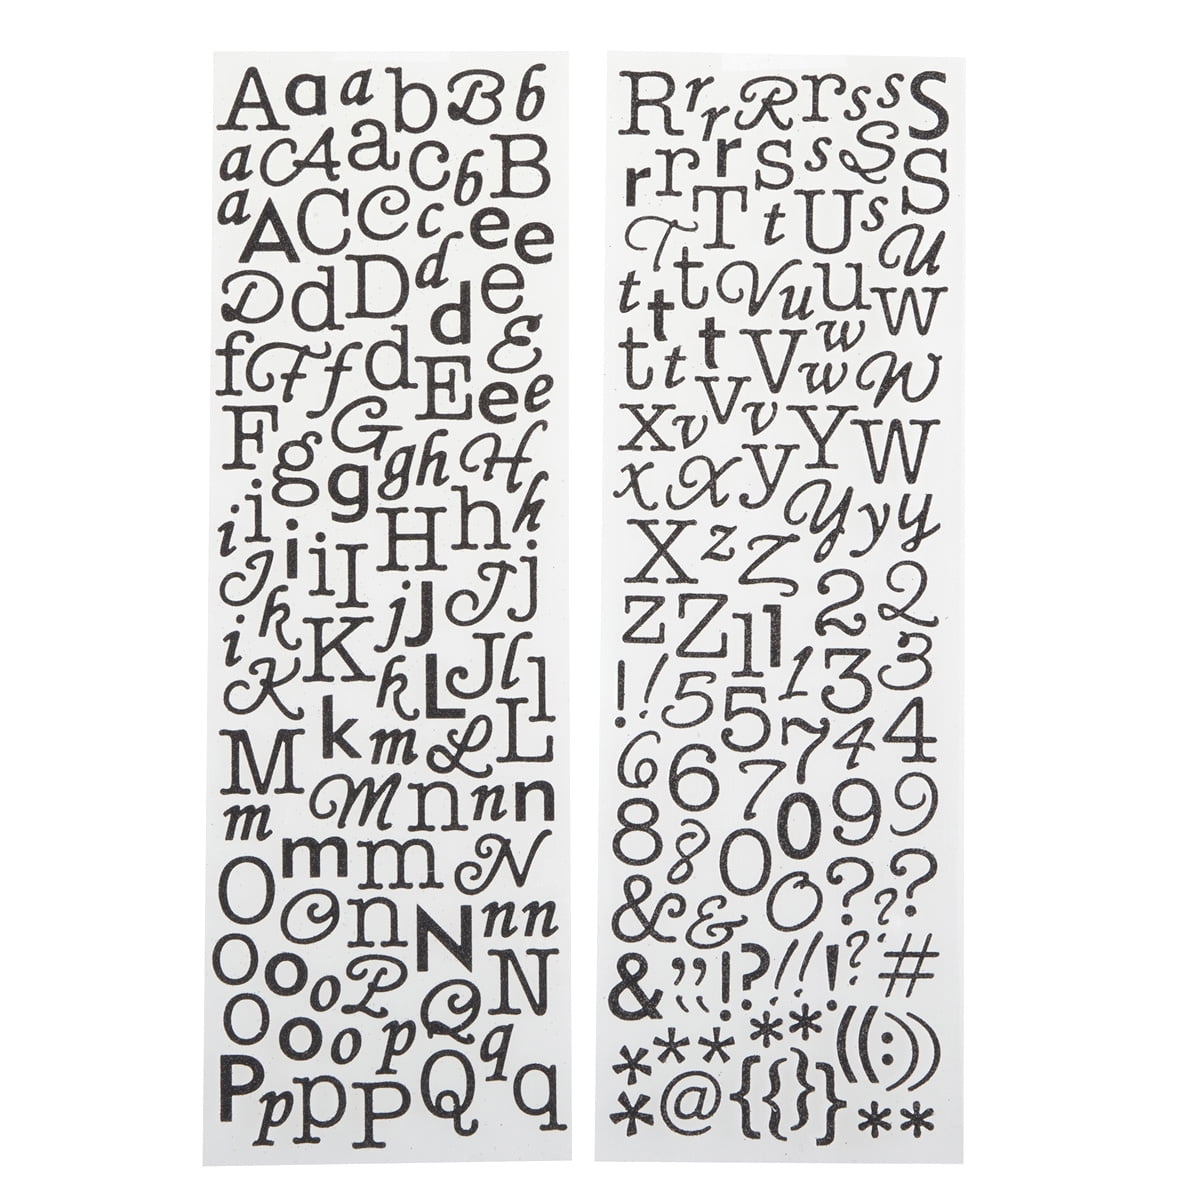 A a a b B b
a C A a c b B
a A C C c e e
D d D d d e
f F f d E E e e
F g G g g h H
i i i i I H h h
I k K j J J j
i K k L J l l
M k m L L
m M n n n
O m m N
O n N n n
O o o P Q N
O o o p q
P p p P Q q
R r r R r s s S
r r r S s S S
T T t U s U
t t t V u u W
t t t V w w W
X v V v Y W
x X y Y y y
X z Z 2 2
Z Z 1 1 1 3 3
! ! 5 5 7 4 4
6 6 7 0 9 9
8 8 0 0 ? ? ?
& &
& , , ! ? ! ! ! ? #
* * * * * ( ( : ) )
* @ { { } } * *